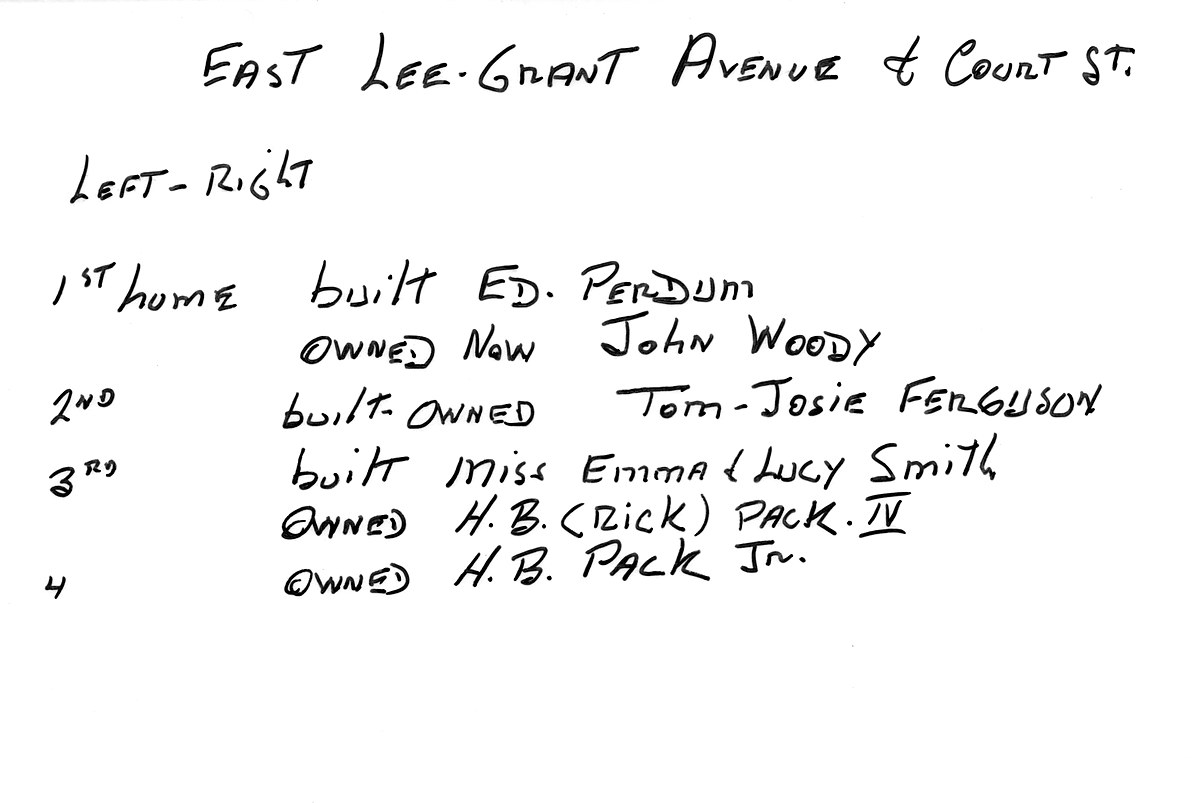 EAST LEE-GRANT AVENUE & COURT ST.
LEFT - RIGHT
1ST home built ED. PERDUM
OWNED NOW JOHN WOODY
2ND built - OWNED TOM - JOSIE FERGUSON
3RD built MISS EMMA & LUCY SMITH
OWNED H. B. (RICK) PACK. IV
4 OWNED H. B. PACK JR.